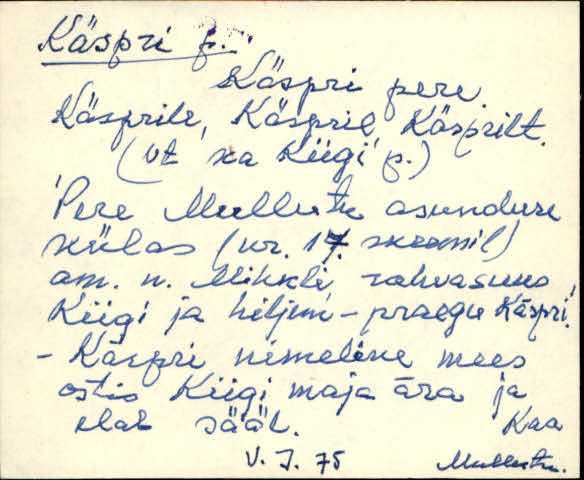 Käspri p.
Käspri pere
Käsprile, Käspril, Käsprilt.
(vt ka Kiigi p.)
Pere Mullutu asunduse
külas (nr. 17 skeemil)
am. n. Mihkli, rahvasuus
Kiigi ja hiljem - praegu Käspri.
- Käspri nimeline mees
ostis Kiigi maja ära ja
elab sääl. Kaa
V. J. 75 Mullutu.